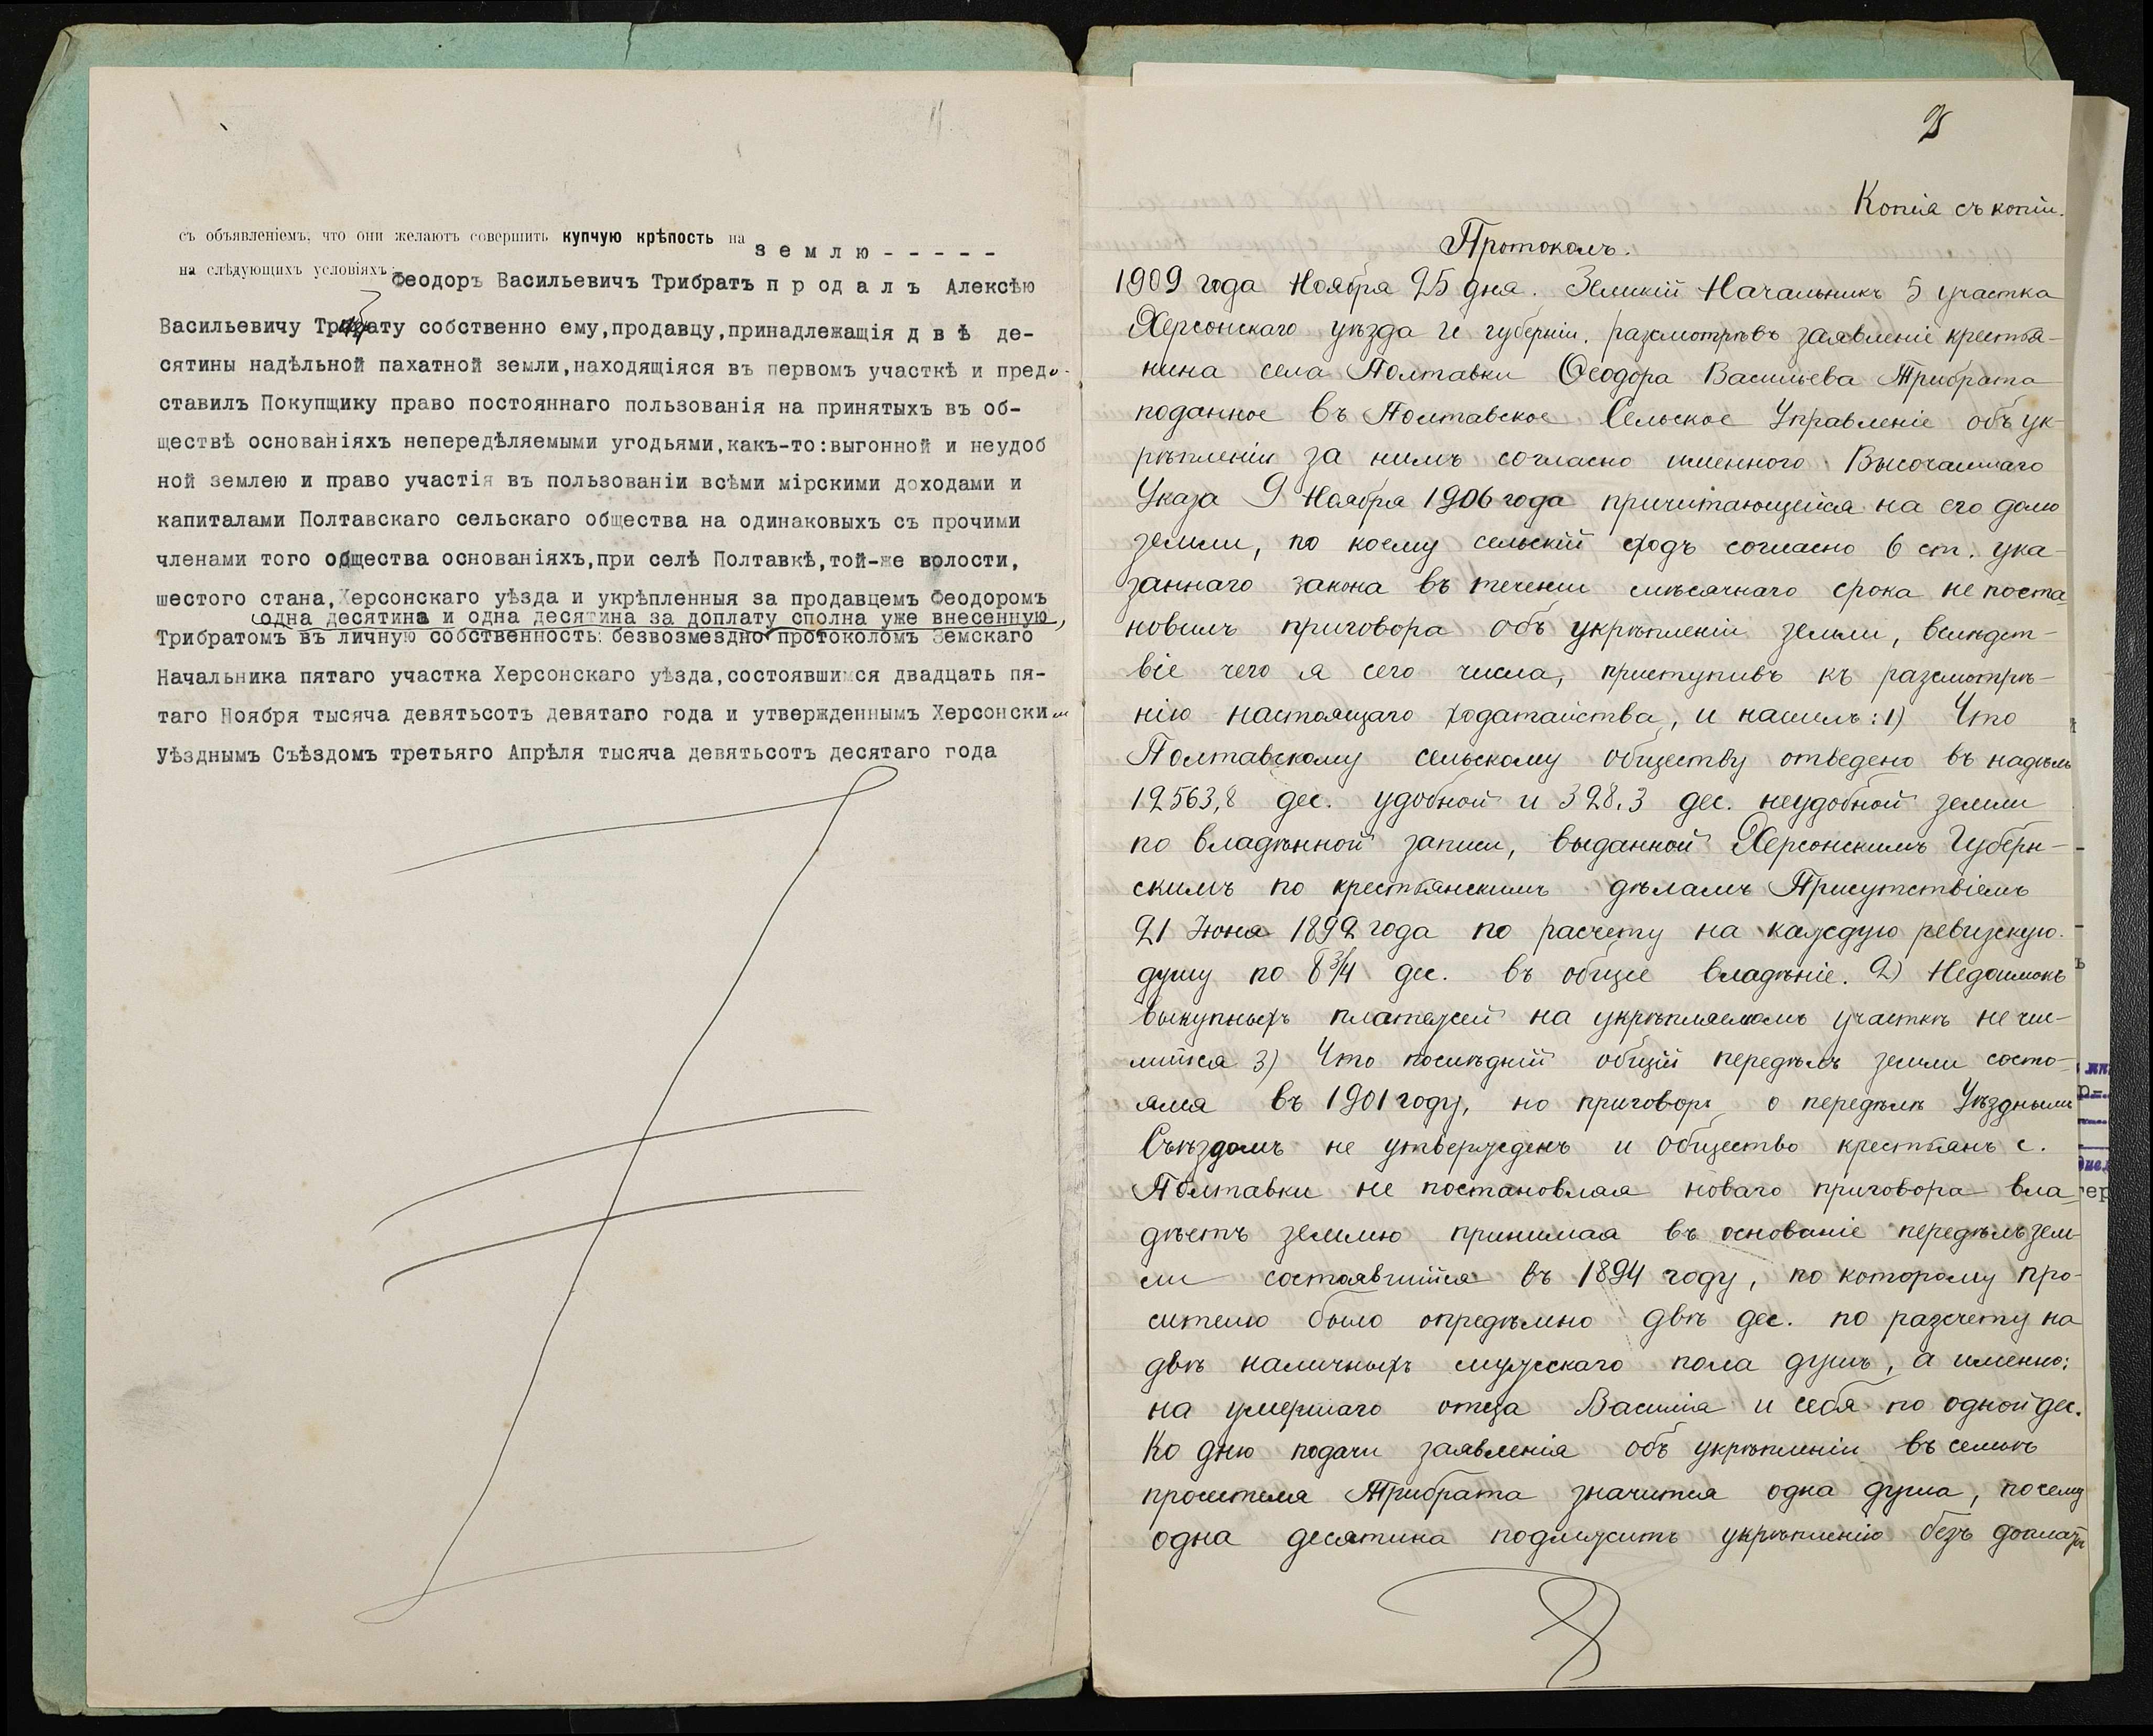 съ объявленіемъ, что они желаютъ совершить купчую крѣпость на землю - - - - -
на слѣдующихъ условіяхъ: Феодоръ Васильевичъ Трибратъ продалъ Алексѣю
Васильевичу Трибрату собственно ему,продавцу,принадлежащія двѣ де-
сятины надѣльной пахатной земли,находящіяся въ первомъ участкѣ и предо-
ставилъ Покупщику право постояннаго пользованія на принятыхъ въ об-
ществѣ основаніяхъ непередѣляемыми угодьями,какъ-то:выгонной и неудоб
ной землею и право участія въ пользованіи всѣми мірскими доходами и
капиталами Полтавскаго сельскаго общества на одинаковыхъ съ прочими
членами того общества основаніяхъ,при селѣ Полтавкѣ,той-же волости,
шестого стана,Херсонскаго уѣзда и укрѣпленныя за продавцемъ Феодоромъ
одна десятина и одна десятина за доплату сполна уже внесенную,
Трибратомъ въ личную собственность: безвозмездно протоколомъ Земскаго
Начальника пятаго участка Херсонскаго уѣзда,состоявшимся двадцать пя-
таго Ноября тысяча девятьсотъ девятаго года и утвержденнымъ Херсонским
Уѣзднымъ Съѣздомъ третьяго Апрѣля тысяча девятьсотъ десятаго года
Копія съ копіи.
Протоколъ.
1909 года Ноября 25 дня. Земскій Начальникъ 5 участка
Херсонскаго уѣзда и губерніи, разсмотрѣвъ заявленіе крестья-
нина села Полтавки Ѳеодора Васильева Трибрата
поданное въ Полтавское Сельское Управленіе объ ук-
рѣпленіи за нимъ согласно именного Высочайшаго
Указа 9 Ноября 1906 года причитающейся на его долю
земли, по коему сельскій сходъ согласно 6 ст. ука-
заннаго закона въ теченіи мѣсячнаго срока не поста-
новилъ приговора объ укрѣпленіи земли, вслѣдст-
віе чего я сего числа, приступивъ къ разсмотрѣ-
нію настоящаго ходатайства, и нашелъ: 1) Что
Полтавскому сельскому обществу отведено въ надѣлъ
12563,8 дес. удобной и 328,3 дес. неудобной земли
по владѣнной записи, выданной Херсонскимъ Губерн-
скимъ по крестьянскимъ дѣламъ Присутствіемъ
21 Іюня 1892 года по расчету на каждую ревизскую
душу по 8 3/4 дес. въ общее владѣніе. 2) Недоимокъ
выкупныхъ платежей на укрѣпляемомъ участкѣ не чис-
лится 3) Что послѣдній общій передѣлъ земли состо-
ялся въ 1901 году, но приговоръ о передѣлѣ Уѣзднымъ
Съѣздомъ не утвержденъ и общество крестьянъ с.
Полтавки не постановляя новаго приговора вла-
дѣетъ землею принимая въ основаніе передѣлъ зем-
ли состоявшійся въ 1894 году, по которому про-
сителю было опредѣлено двѣ дес. по разсчету на
двѣ наличныхъ мужскаго пола душъ, а именно:
на умершаго отца Василія и себя по одной дес.
Ко дню подачи заявленія объ укрѣпленіи въ семьѣ
просителя Трибрата значится одна душа, почему
одна десятина подлежитъ укрѣпленію безъ доплаты